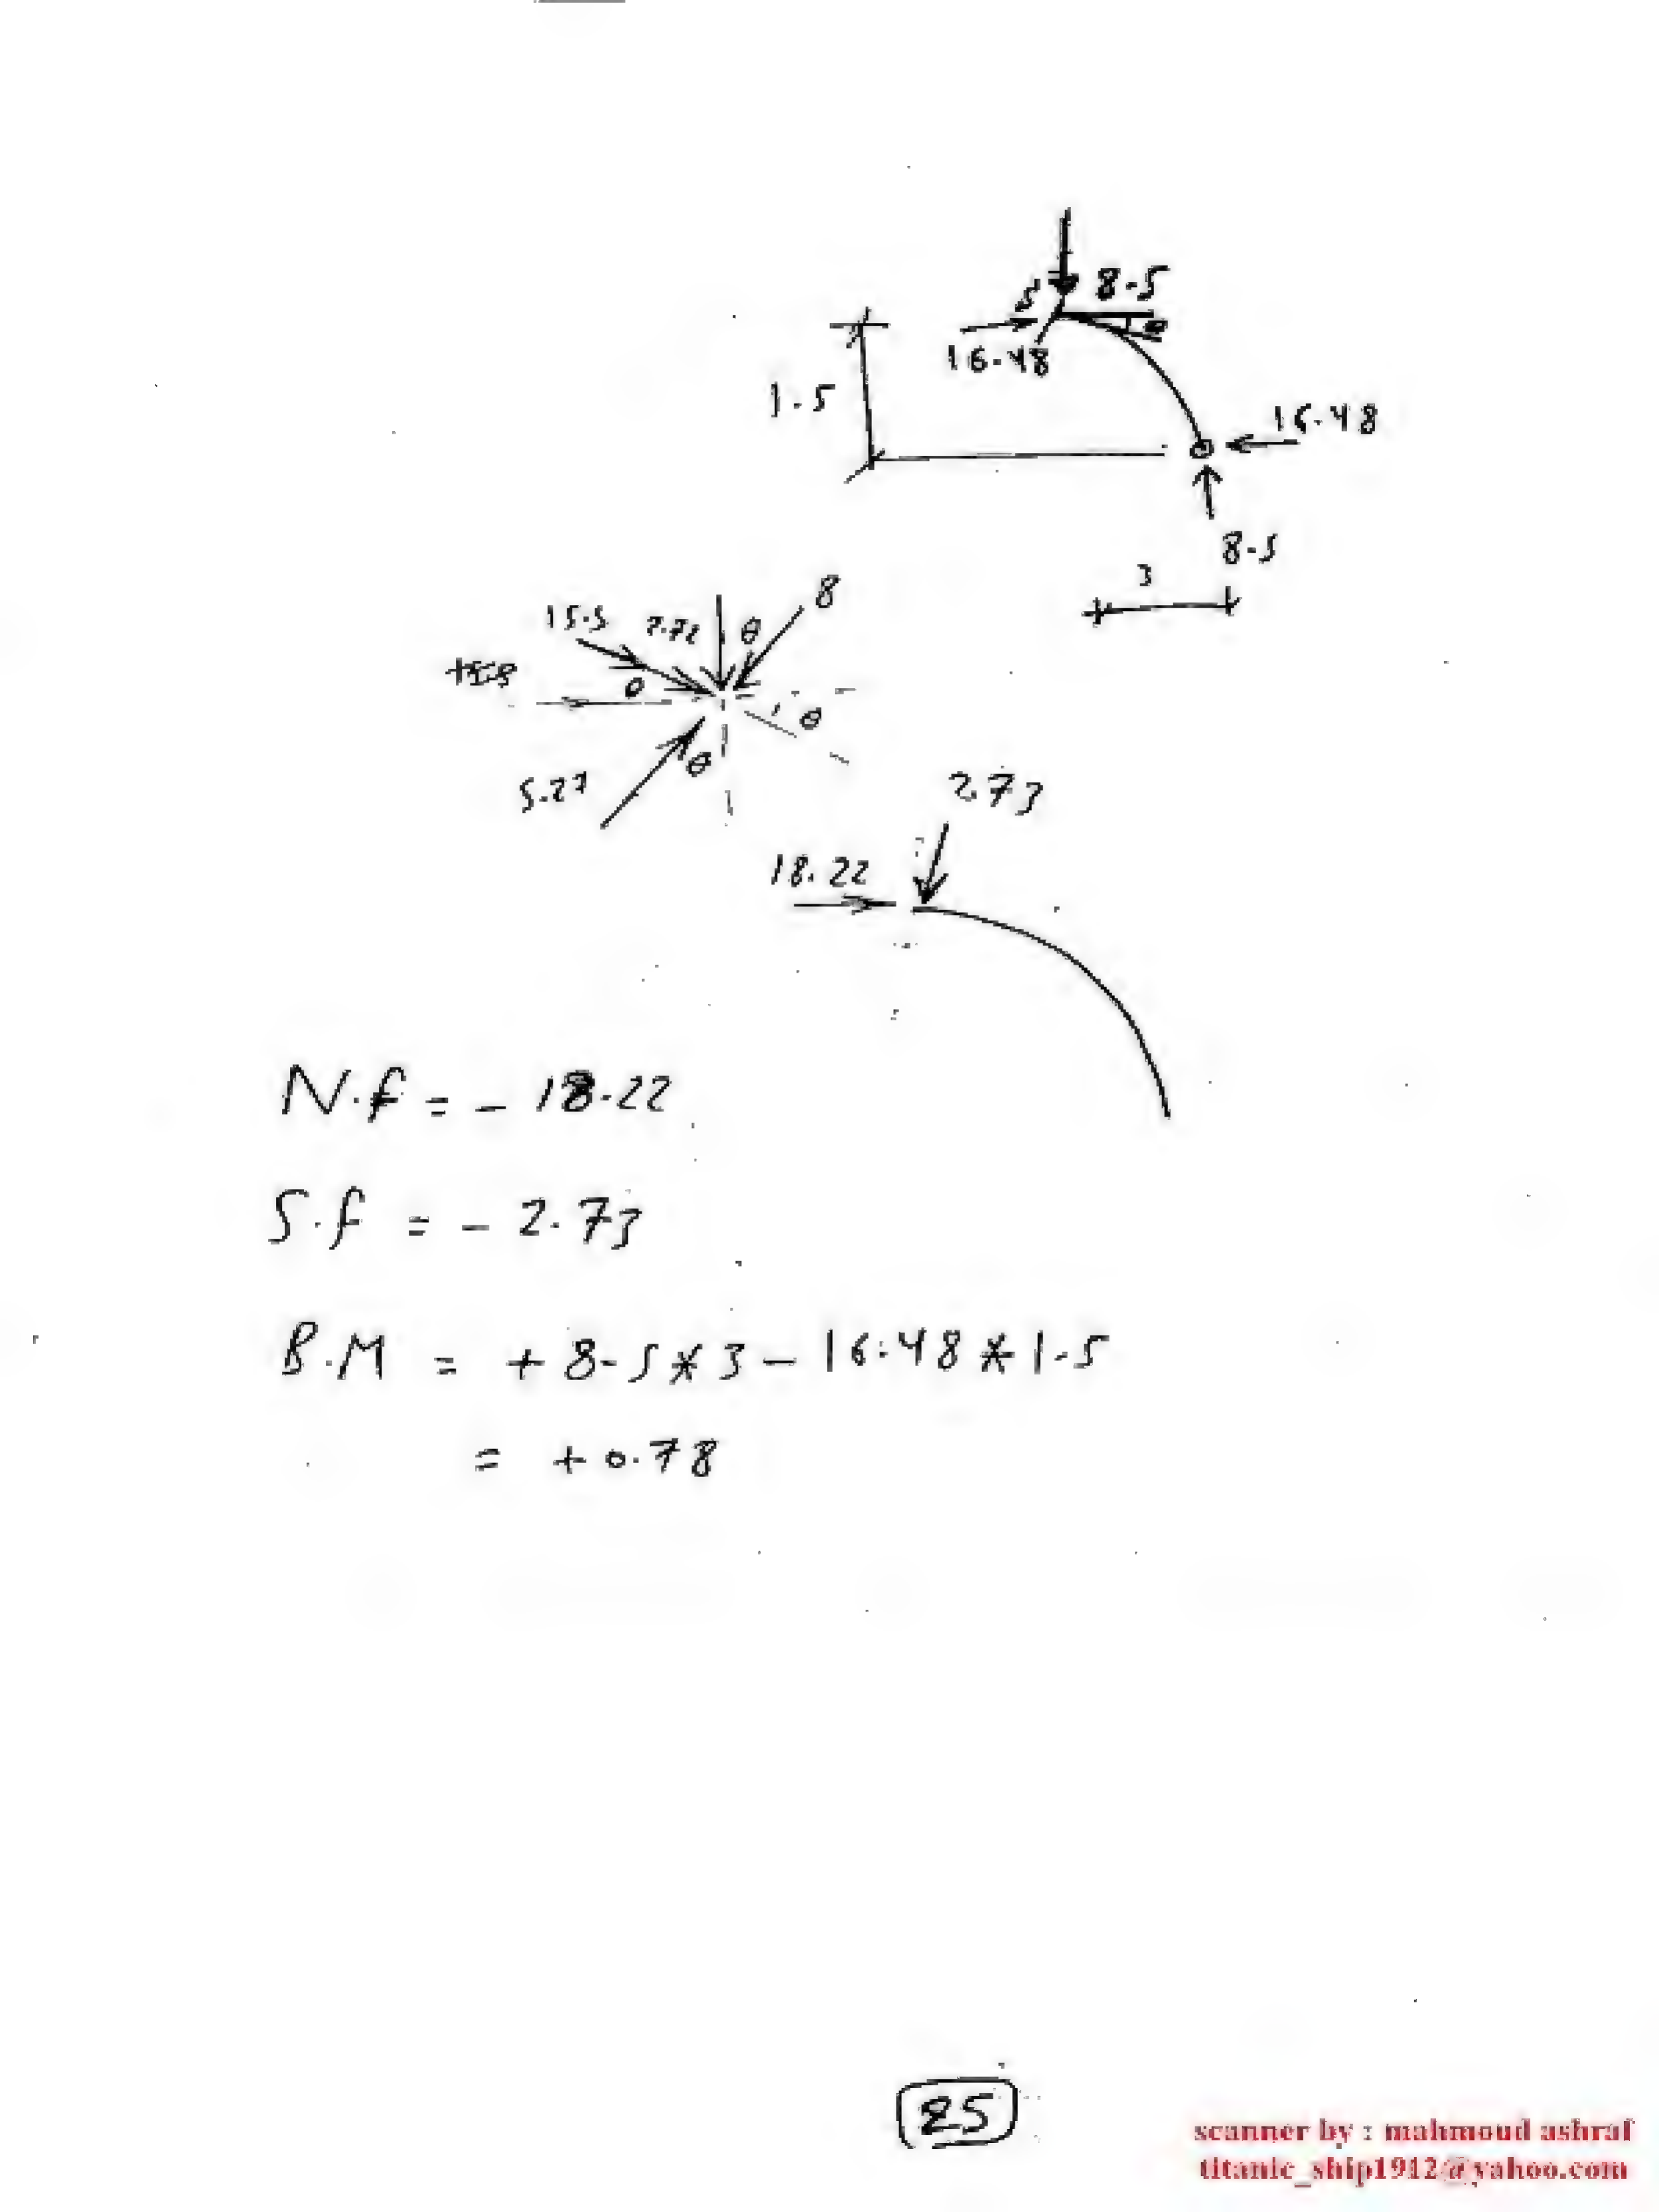 8.5
S
θ
16.48
1.5
16.48
8.5
3
8
15.5
2.72
θ
θ
θ
5.27
θ
2.73
18.22
N.f = - 18.22
S.f = - 2.73
B.M = + 8.5 * 3 - 16.48 * 1.5
= + 0.78
25
scanner by : mahmoud ashraf
titanic_ship1912@yahoo.com